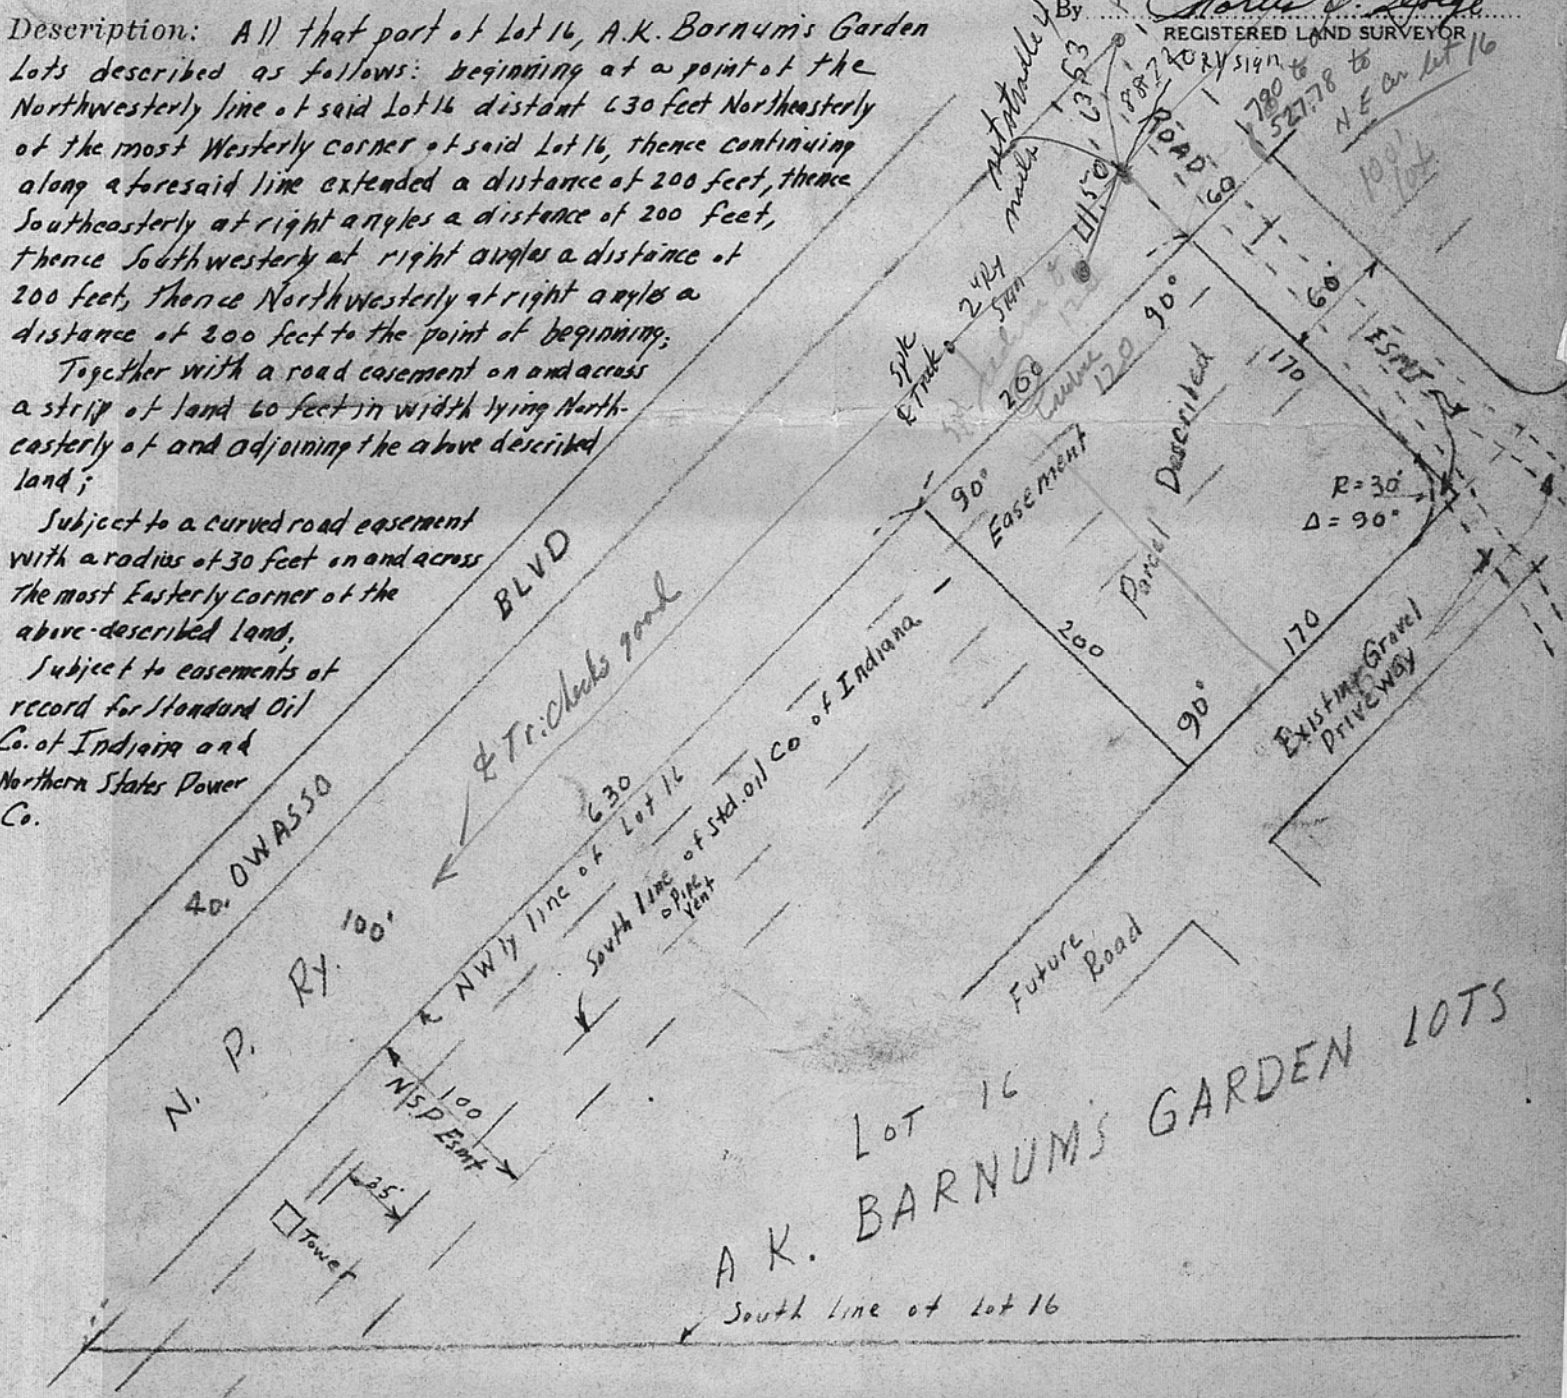 Description: All that part of Lot 16, A.K. Barnum's Garden
Lots described as follows: beginning at a point of the
Northwesterly line of said Lot 16 distant 630 feet Northeasterly
of the most Westerly corner of said Lot 16, thence continuing
along aforesaid line extended a distance of 200 feet, thence
Southeasterly at right angles a distance of 200 feet,
thence Southwesterly at right angles a distance of
200 feet, thence Northwesterly at right angles a
distance of 200 feet to the point of beginning;
Together with a road easement on and across
a strip of land 60 feet in width lying North-
easterly of and adjoining the above described
land;
Subject to a curved road easement
with a radius of 30 feet on and across
The most Easterly corner of the
above-described land;
Subject to easements of
record for Standard Oil
Co. of Indiana and
Northern States Power
Co.
By
REGISTERED LAND SURVEYOR
nails
63.53
188.7
41.50
2" Ry
Sign
Ry sign
ROAD
60
780 to
527.78 to
N E cor lot 16
100'
lot
Spk
200
120
90°
60'
ESMT
170
90°
Easement
Parcel Described
R=30'
Δ=90°
200
170
90°
Existing Gravel
Driveway
40' OWASSO BLVD
Tr. checks good
N. P. Ry. 100'
630
NWly line of Lot 16
South line of Std. Oil Co of Indiana
Pipe
Vent
100
NSP Esmt
25'
Tower
Future
Road
LOT 16
A K. BARNUM'S GARDEN LOTS
South line of Lot 16